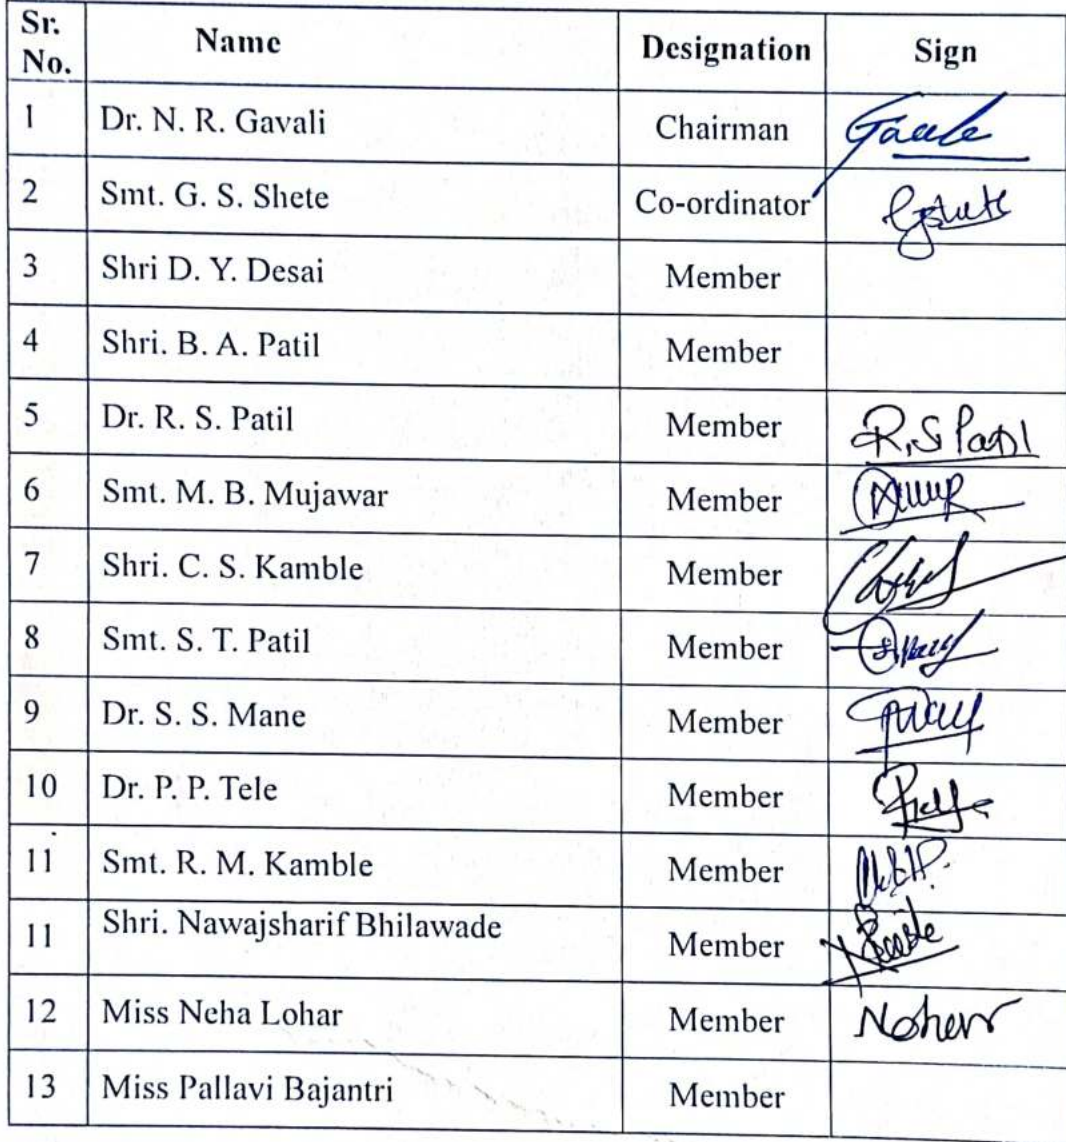 Sr. No. Name Designation Sign
1 Dr. N. R. Gavali Chairman
2 Smt. G. S. Shete Co-ordinator
3 Shri D. Y. Desai Member
4 Shri. B. A. Patil Member
5 Dr. R. S. Patil Member R.S Patil
6 Smt. M. B. Mujawar Member
7 Shri. C. S. Kamble Member
8 Smt. S. T. Patil Member
9 Dr. S. S. Mane Member
10 Dr. P. P. Tele Member
11 Smt. R. M. Kamble Member
11 Shri. Nawajsharif Bhilawade Member
12 Miss Neha Lohar Member
13 Miss Pallavi Bajantri Member